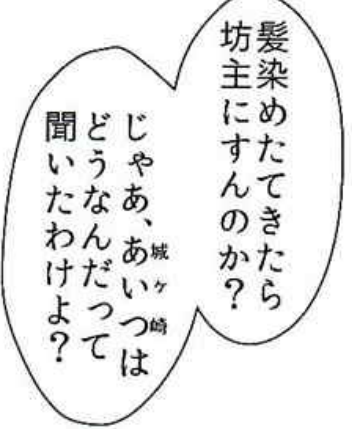 髪染めたてきたら
坊主にすんのか？
じゃあ、あいつは
城ヶ崎
どうなんだって
聞いたわけよ？